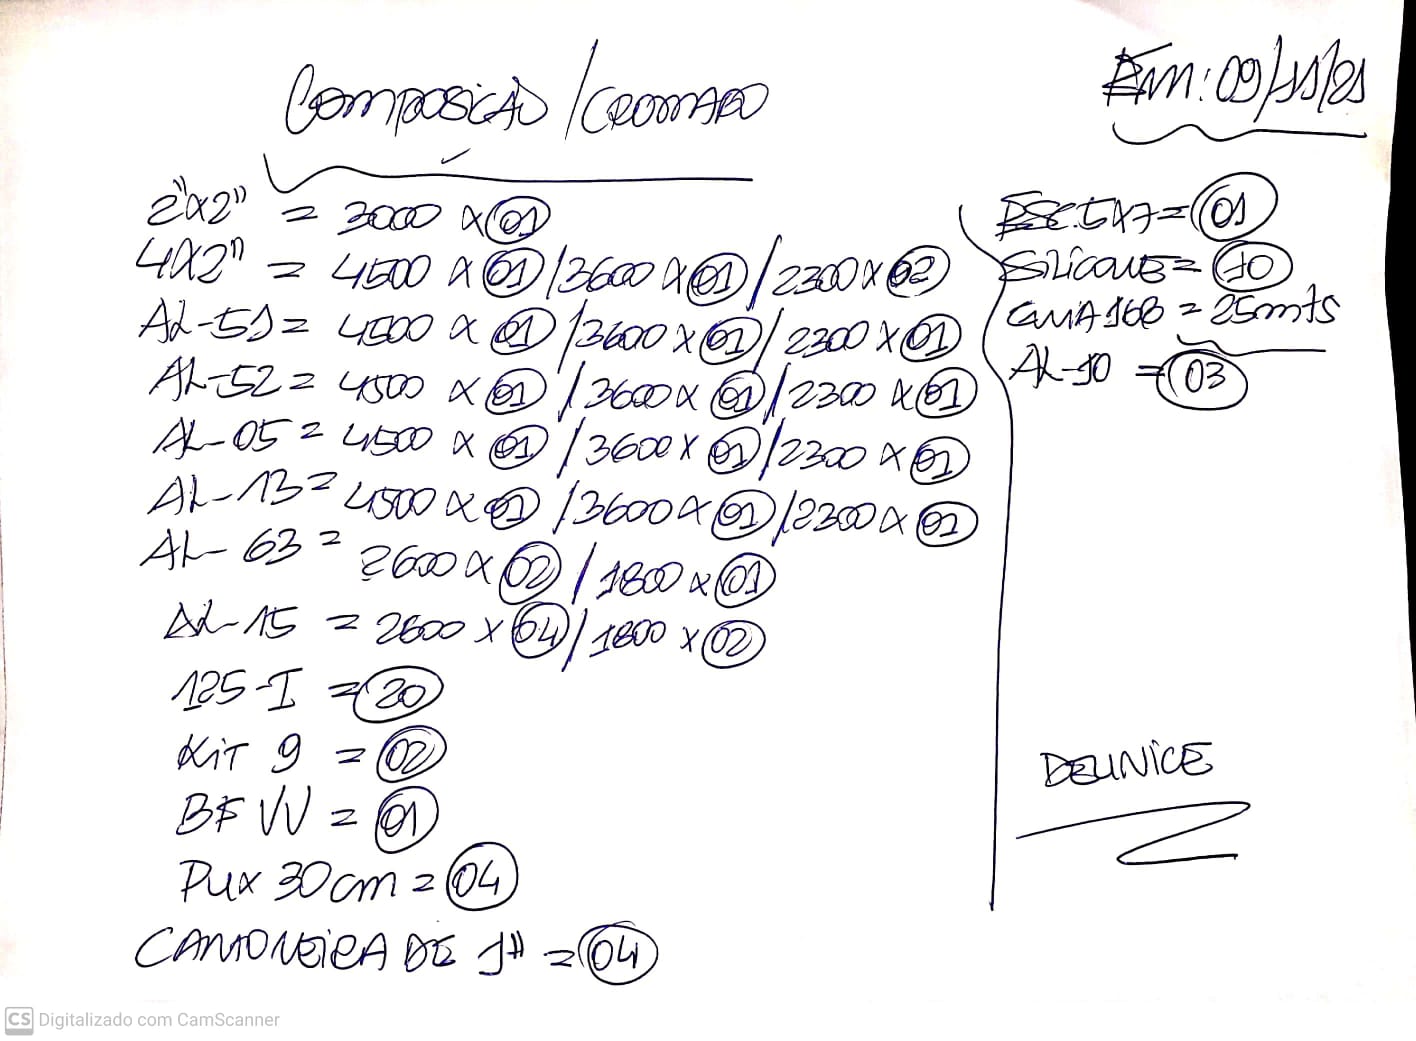 COMPOSIÇÃO / CROMADO
Em: 09/11/21
2"x2" = 3000 x 01
4x2" = 4500 x 01 / 3600 x 01 / 2300 x 02
AL-51 = 4500 x 01 / 3600 x 01 / 2300 x 01
AL-52 = 4500 x 01 / 3600 x 01 / 2300 x 01
AL-05 = 4500 x 01 / 3600 x 01 / 2300 x 01
AL-13 = 4500 x 01 / 3600 x 01 / 2300 x 01
AL-63 = 2600 x 02 / 1800 x 01
AL-15 = 2600 x 04 / 1800 x 02
125-I = 20
KIT 9 = 02
BF VV = 01
PUX 30cm = 04
CANTONEIRA DE 1" = 04
ESC. 5x7 = 01
SILICONE = 10
GUIA 168 = 25mts
AL-10 = 03
DEUNICE
CS Digitalizado com CamScanner